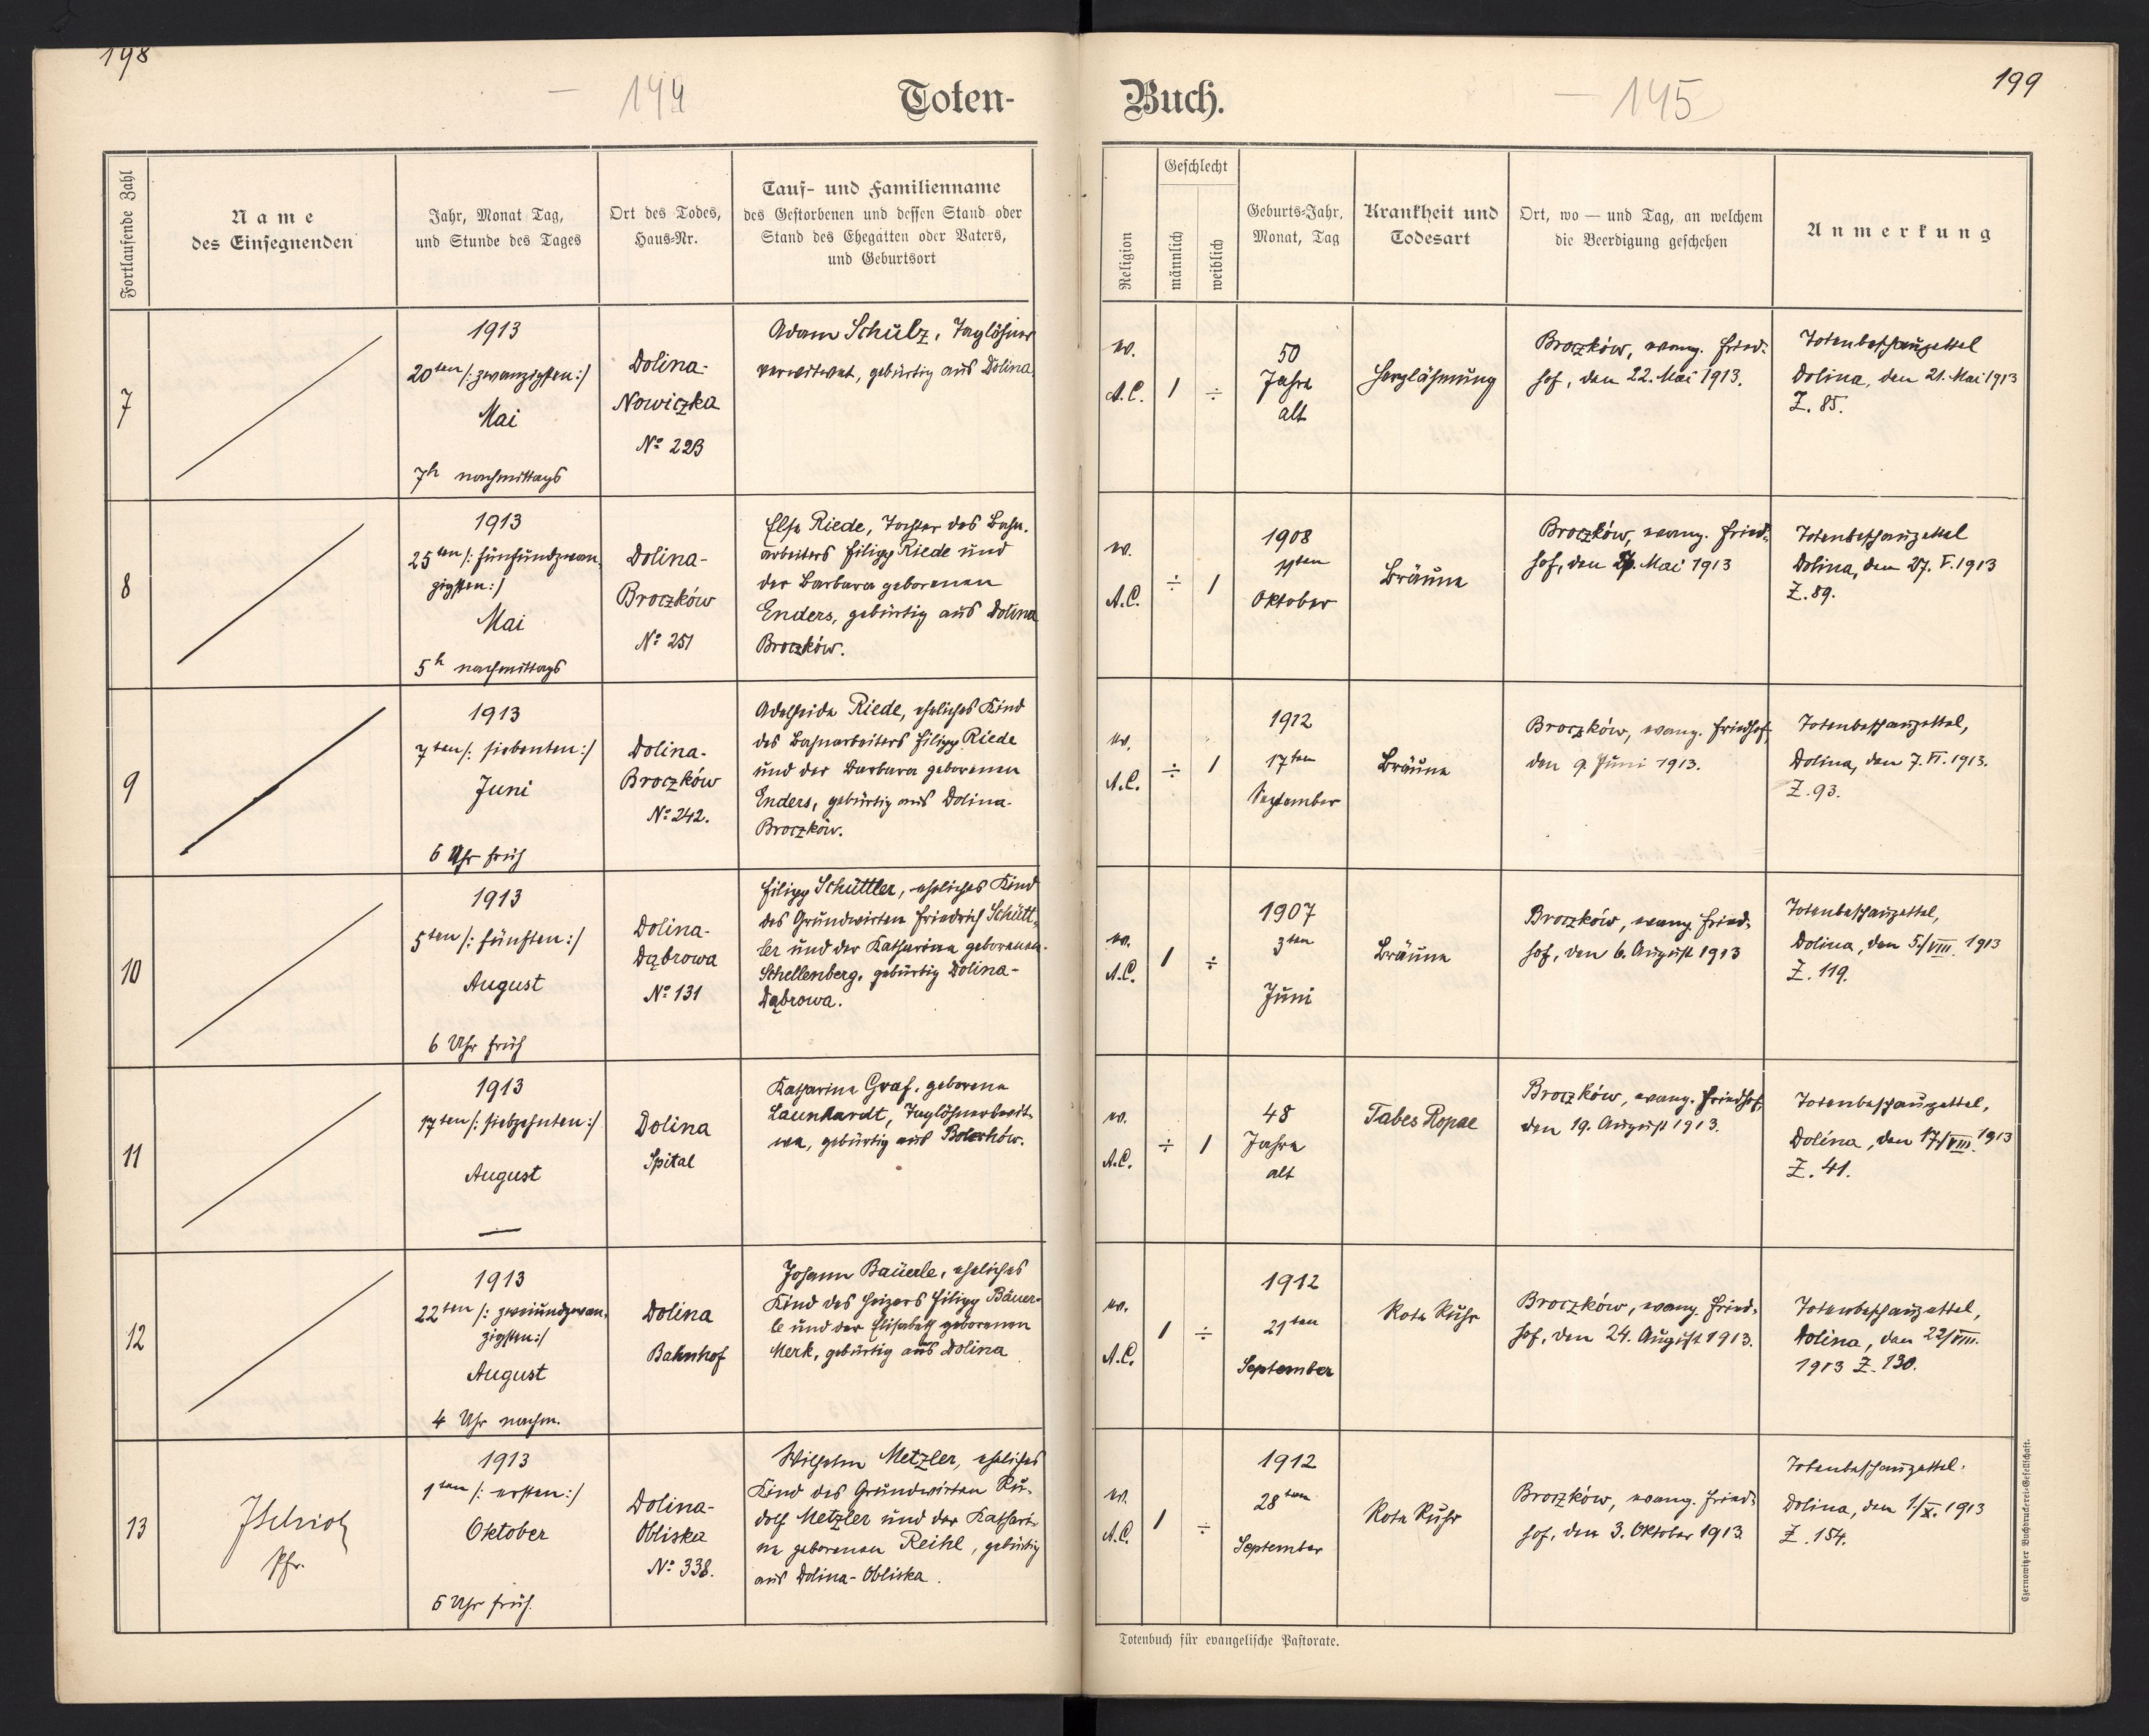 198
144
Toten-
Fortlaufende Zahl
Name
des Einsegnenden
Jahr, Monat Tag,
und Stunde des Tages
Ort des Todes,
Haus-Nr.
Tauf- und Familienname
des Gestorbenen und dessen Stand oder
Stand des Ehegatten oder Vaters,
und Geburtsort
7
1913
20ten /: zwanzigsten :/
Mai
7h nachmittags
Dolina-
Nowiczka
No 223
Adam Schulz, Taglöhner
verwitwet, gebürtig aus Dolina.
8
1913
25ten /: fünfundzwan-
zigsten :/
Mai
5h nachmittags
Dolina-
Broczków
No 251
Else Riede, Tochter des Bahn-
arbeiters Filipp Riede und
der Barbara geborenen
Enders, gebürtig aus Dolina
Broczków.
9
1913
7ten /: siebenten :/
Juni
6 Uhr früh
Dolina-
Broczków
No 242.
Adelheide Riede, eheliches Kind
des Bahnarbeiters Filipp Riede
und der Barbara geborenen
Enders, gebürtig aus Dolina-
Broczków.
10
1913
5ten /: fünften :/
August
6 Uhr früh
Dolina-
Dąbrowa
No 131
Filipp Schüttler, eheliches Kind
des Grundwirten Friedrich Schütt-
ler und der Katharina geborenen
Schellenberg, gebürtig Dolina-
Dąbrowa.
11
1913
17ten /: siebzehnten :/
August
—
Dolina
Spital
Katharina Graf, geborene
Launhardt, Taglöhnerswit-
we, gebürtig aus Bolechów.
12
1913
22ten /: zweiundzwan-
zigsten :/
August
4 Uhr nachm.
Dolina
Bahnhof
Johann Bäuerle, eheliches
Kind des Heizers Filipp Bäuer-
le und der Elisabeth geborenen
Merk, gebürtig aus Dolina
13
Pfr.
1913
1ten /: ersten :/
Oktober
6 Uhr früh.
Dolina-
Obliska
No 338.
Wilhelm Metzler, eheliches
Kind des Grundwirten Ru-
dolf Metzler und der Kathari-
na geborenen Reihl, gebürtig
aus Dolina-Obliska.
199
145
Buch.
Religion
Geschlecht
männlich
weiblich
Geburts-Jahr,
Monat, Tag
Krankheit und
Todesart
Ort, wo — und Tag, an welchem
die Beerdigung geschehen
Anmerkung
ev.
A.C.
1
÷
50
Jahre
alt
Herzlähmung
Broczków, evang. Fried-
hof, den 22. Mai 1913.
Totenbeschauzettel
Dolina, den 21. Mai 1913
Z. 85.
ev.
A.C.
÷
1
1908
11ten
Oktober
Bräune
Broczków, evang. Fried-
hof, den 27. Mai 1913
Totenbeschauzettel
Dolina, den 27. V. 1913
Z. 89.
ev.
A.C.
÷
1
1912
17ten
September
Bräune
Broczków, evang. Friedhof,
den 9. Juni 1913.
Totenbeschauzettel,
Dolina, den 7. VI. 1913.
Z. 93.
ev.
A.C.
1
÷
1907
3ten
Juni
Bräune
Broczków, evang. Fried-
hof, den 6. August 1913
Totenbeschauzettel,
Dolina, den 5/VIII. 1913
Z. 119.
ev.
A.C.
÷
1
48
Jahre
alt
Tabes Ropae
Broczków, evang. Friedhof,
den 19. August 1913.
Totenbeschauzettel,
Dolina, den 17/VIII. 1913
Z. 41.
ev.
A.C.
1
÷
1912
21ten
September
Rote Ruhr
Broczków, evang. Fried-
hof, den 24. August 1913.
Totenbeschauzettel,
Dolina, den 22/VIII.
1913 Z. 130.
ev.
A.C.
1
÷
1912
28ten
September
Rote Ruhr
Broczków, evang. Fried-
hof, den 3. Oktober 1913
Totenbeschauzettel.
Dolina, den 1/X. 1913
Z. 154.
Totenbuch für evangelische Pastorate.
Czernowitzer Buchdruckerei-Gesellschaft.